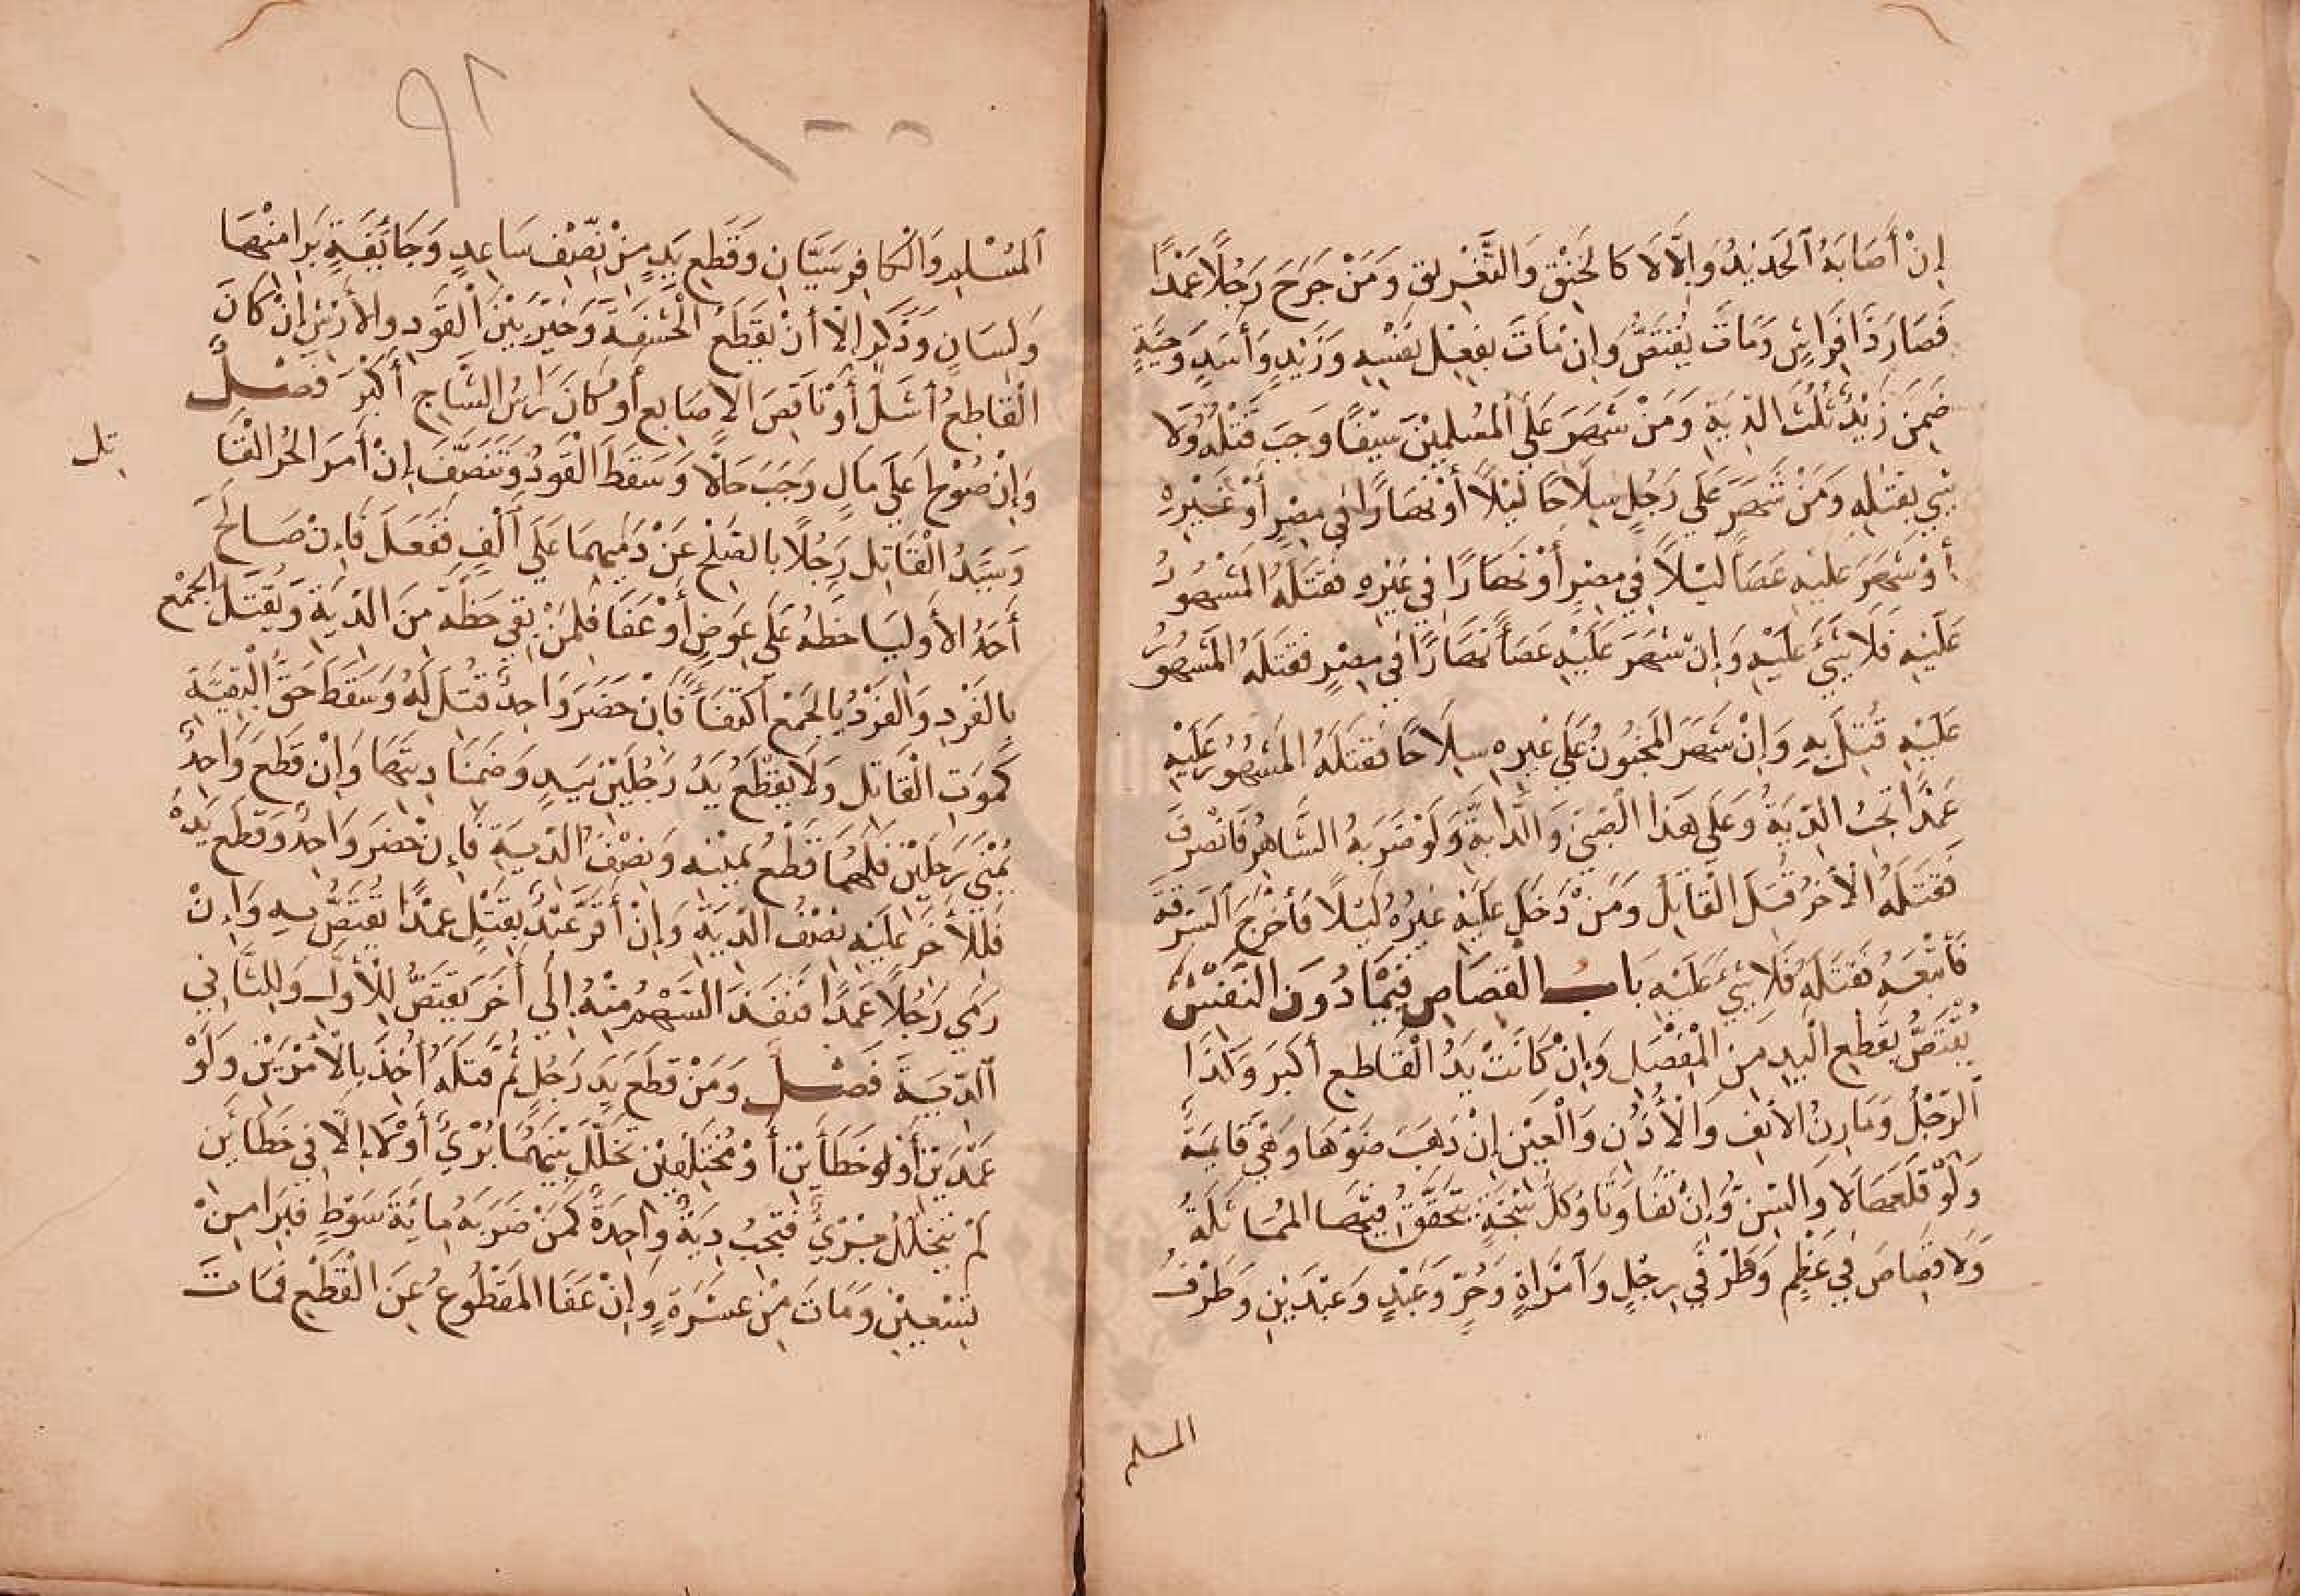 إِنْ أَصَابَهُ الْحَدِيدُ وَإِلَّا لَا كَالْخَنْقِ وَالتَّغْرِيقِ وَمَنْ جَرَحَ رَجُلًا عَمْدًا
فَصَارَ ذَا فِرَاشٍ وَمَاتَ يُقْتَصُّ وَإِنْ مَاتَ بِفِعْلِ نَفْسِهِ وَزَيْدٍ وَأَسَدٍ وَحَيَّةٍ
ضَمِنَ زَيْدٌ ثُلُثَ الدِّيَةِ وَمَنْ شَهَرَ عَلَى الْمُسْلِمِيْنَ سَيْفًا وَجَبَ قَتْلُهُ وَلَا
شَيْءَ بِقَتْلِهِ وَمَنْ شَهَرَ عَلَى رَجُلٍ سِلَاحًا لَيْلًا أَوْ نَهَارًا فِي مِصْرٍ أَوْ غَيْرِهِ
أَوْ شَهَرَ عَلَيْهِ عَصًا لَيْلًا فِي مِصْرٍ أَوْ نَهَارًا فِي غَيْرِهِ فَقَتَلَهُ الْمَشْهُورُ
عَلَيْهِ فَلَا شَيْءَ عَلَيْهِ وَإِنْ شَهَرَ عَلَيْهِ عَصًا نَهَارًا فِي مِصْرٍ فَقَتَلَهُ الْمَشْهُورُ
عَلَيْهِ قُتِلَ بِهِ وَإِنْ شَهَرَ الْمَجْنُونُ عَلَى غَيْرِهِ سِلَاحًا فَقَتَلَهُ الْمَشْهُورُ عَلَيْهِ
عَمْدًا تَجِبُ الدِّيَةُ وَعَلَى هَذَا الصَّبِيُّ وَالدَّابَّةُ وَلَوْ ضَرَبَهُ الشَّاهِرُ فَانْصَرَفَ
فَقَتَلَهُ الْآخَرُ قُتِلَ الْقَاتِلُ وَمَنْ دَخَلَ عَلَيْهِ غَيْرُهُ لَيْلًا فَأَخْرَجَ السَّرِقَةَ
فَاتَّبَعَهُ فَقَتَلَهُ فَلَا شَيْءَ عَلَيْهِ بَابُ الْقِصَاصِ فِيْمَا دُوْنَ النَّفْسِ
يُقْتَصُّ بِقَطْعِ الْيَدِ مِنَ الْمِفْصَلِ وَإِنْ كَانَتْ يَدُ الْقَاطِعِ أَكْبَرَ وَكَذَا
الرِّجْلُ وَمَارِنُ الْأَنْفِ وَالْأُذُنِ وَالْعَيْنِ إِنْ ذَهَبَ ضَوْهَا وَهِيَ قَايِمَةٌ
وَلَوْ قَلَعَهَا لَا وَالسِّنِّ وَإِنْ تَفَاوَتَا وَكُلُّ شَجَّةٍ تَتَحَقَّقُ فِيْهَا الْمُمَاثَلَةُ
وَلَا قِصَاصَ فِي عَظْمٍ وَطَرَفَي رِجُلٍ وَامْرَأَةٍ وَحُرٍّ وَعَبْدٍ وَعَبْدَيْنِ وَطَرْفُ
المسلم
٩٢
الْمُسْلِمِ وَالْكَافِرِ سَيَّانِ وَقَطْعِ يَدٍ مِنْ نِصْفِ سَاعِدٍ وَجَائِفَةٍ بَرَا مِنْهَا
وَلِسَانٍ وَذَكَرٍ إِلَّا أَنْ يُقْطَعَ الْحَشَفَةُ وَخُيِّرَ بَيْنَ الْقَوَدِ وَالْأَرْشِ إِنْ كَانَ
الْقَاطِعُ أَشَلَّ أَوْ نَاقِصَ الْأَصَابِعِ أَوْ كَانَ رَأْسُ الشَّاجِ أَكْبَرَ فَصْلٌ
وَإِنْ صُوْلِحَا عَلَى مَالٍ وَجَبَ حَالًا وَسَقَطَ الْقَوَدُ وَتَنَصَّفَ إِنْ أَمَرَ الْحُرُّ الْقَا
تل
وَسَيِّدُ الْقَاتِلِ رَجُلًا بِالصُّلْحِ عَنْ دَمِهِمَا عَلَى أَلْفٍ فَفَعَلَ فَإِنْ صَالَحَ
أَحَدُ الْأَوْلِيَا حَظَّهُ عَلَى عِوَضٍ أَوْ عَفَا فَلِمَنْ بَقِيَ حَظُّهُ مِنَ الدِّيَةِ وَيُقْتَلُ الْجَمْعُ
بِالْفَرْدِ وَالْفَرْدُ بِالْجَمْعِ اكْتِفَاءً فَإِنْ حَضَرَ وَاحِدٌ قُتِلَ لَهُ وَسَقَطَ حَقُّ الْبَقِيَّةِ
كَمَوْتِ الْقَاتِلِ وَلَا يُقْطَعُ يَدُ رَجُلَيْنِ بِيَدٍ وَضَمِنَا دِيَتَهَا وَإِنْ قَطَعَ وَاحِدٌ
يُمْنَى رَجُلَيْنِ فَلَهُمَا قَطْعُ يَمِيْنِهِ وَنِصْفُ الدِّيَةِ فَإِنْ حَضَرَ وَاحِدٌ وَقَطَعَ يَدَهُ
فَلِلْأَخَرِ عَلَيْهِ نِصْفُ الدِّيَةِ وَإِنْ أَقَرَّ عَبْدٌ بِقَتْلِ عَمْدًا يُقْتَصُّ بِهِ وَإِنْ
رَمَى رَجُلًا عَمْدًا فَنَفَذَ السَّهْمُ مِنْهُ إِلَى أَخَرَ يَقْتَصُّ لِلْأَوَّلِ وَلِلثَّانِي
الدِّيَةَ فَصْلٌ وَمَنْ قَطَعَ يَدَ رَجُلٍ ثُمَّ قَتَلَهُ أُخِذَ بِالْأَمْرَيْنِ وَلَوْ
عَمْدَيْنِ أَوْ لَوْ خَطَأَيْنِ أَوْ مُخْتَلِفَيْنِ تَخَلَّلَ بَيْنَهُمَا بُرْئٌ أَوْ لَا إِلَّا فِي خَطَأَيْنِ
لَمْ يَتَخَلَّلْ بُرْئٌ فَتَجِبُ دِيَةٌ وَاحِدَةٌ كَمَنْ ضَرَبَهُ مِايَةَ سَوْطٍ فَبَرَا مِنْ
تِسْعِيْنَ وَمَاتَ مِنْ عَشْرَةٍ وَإِنْ عَفَا الْمَقْطُوعُ عَنِ الْقَطْعِ فَمَاتَ